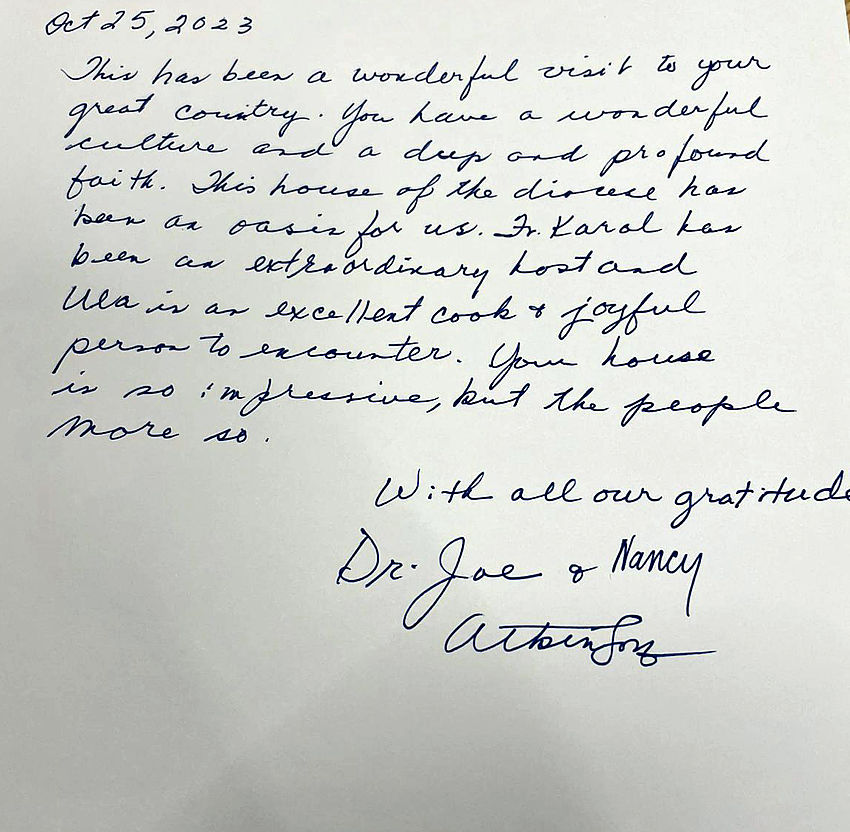 Oct 25, 2023
This has been a wonderful visit to your
great country. You have a wonderful
culture and a deep and profound
faith. This house of the diocese has
been an oasis for us. Fr. Karol has
been an extraordinary host and
Ula is an excellent cook & joyful
person to encounter. Your house
is so impressive, but the people
more so.
With all our gratitude
Dr. Joe & Nancy
Atkinson